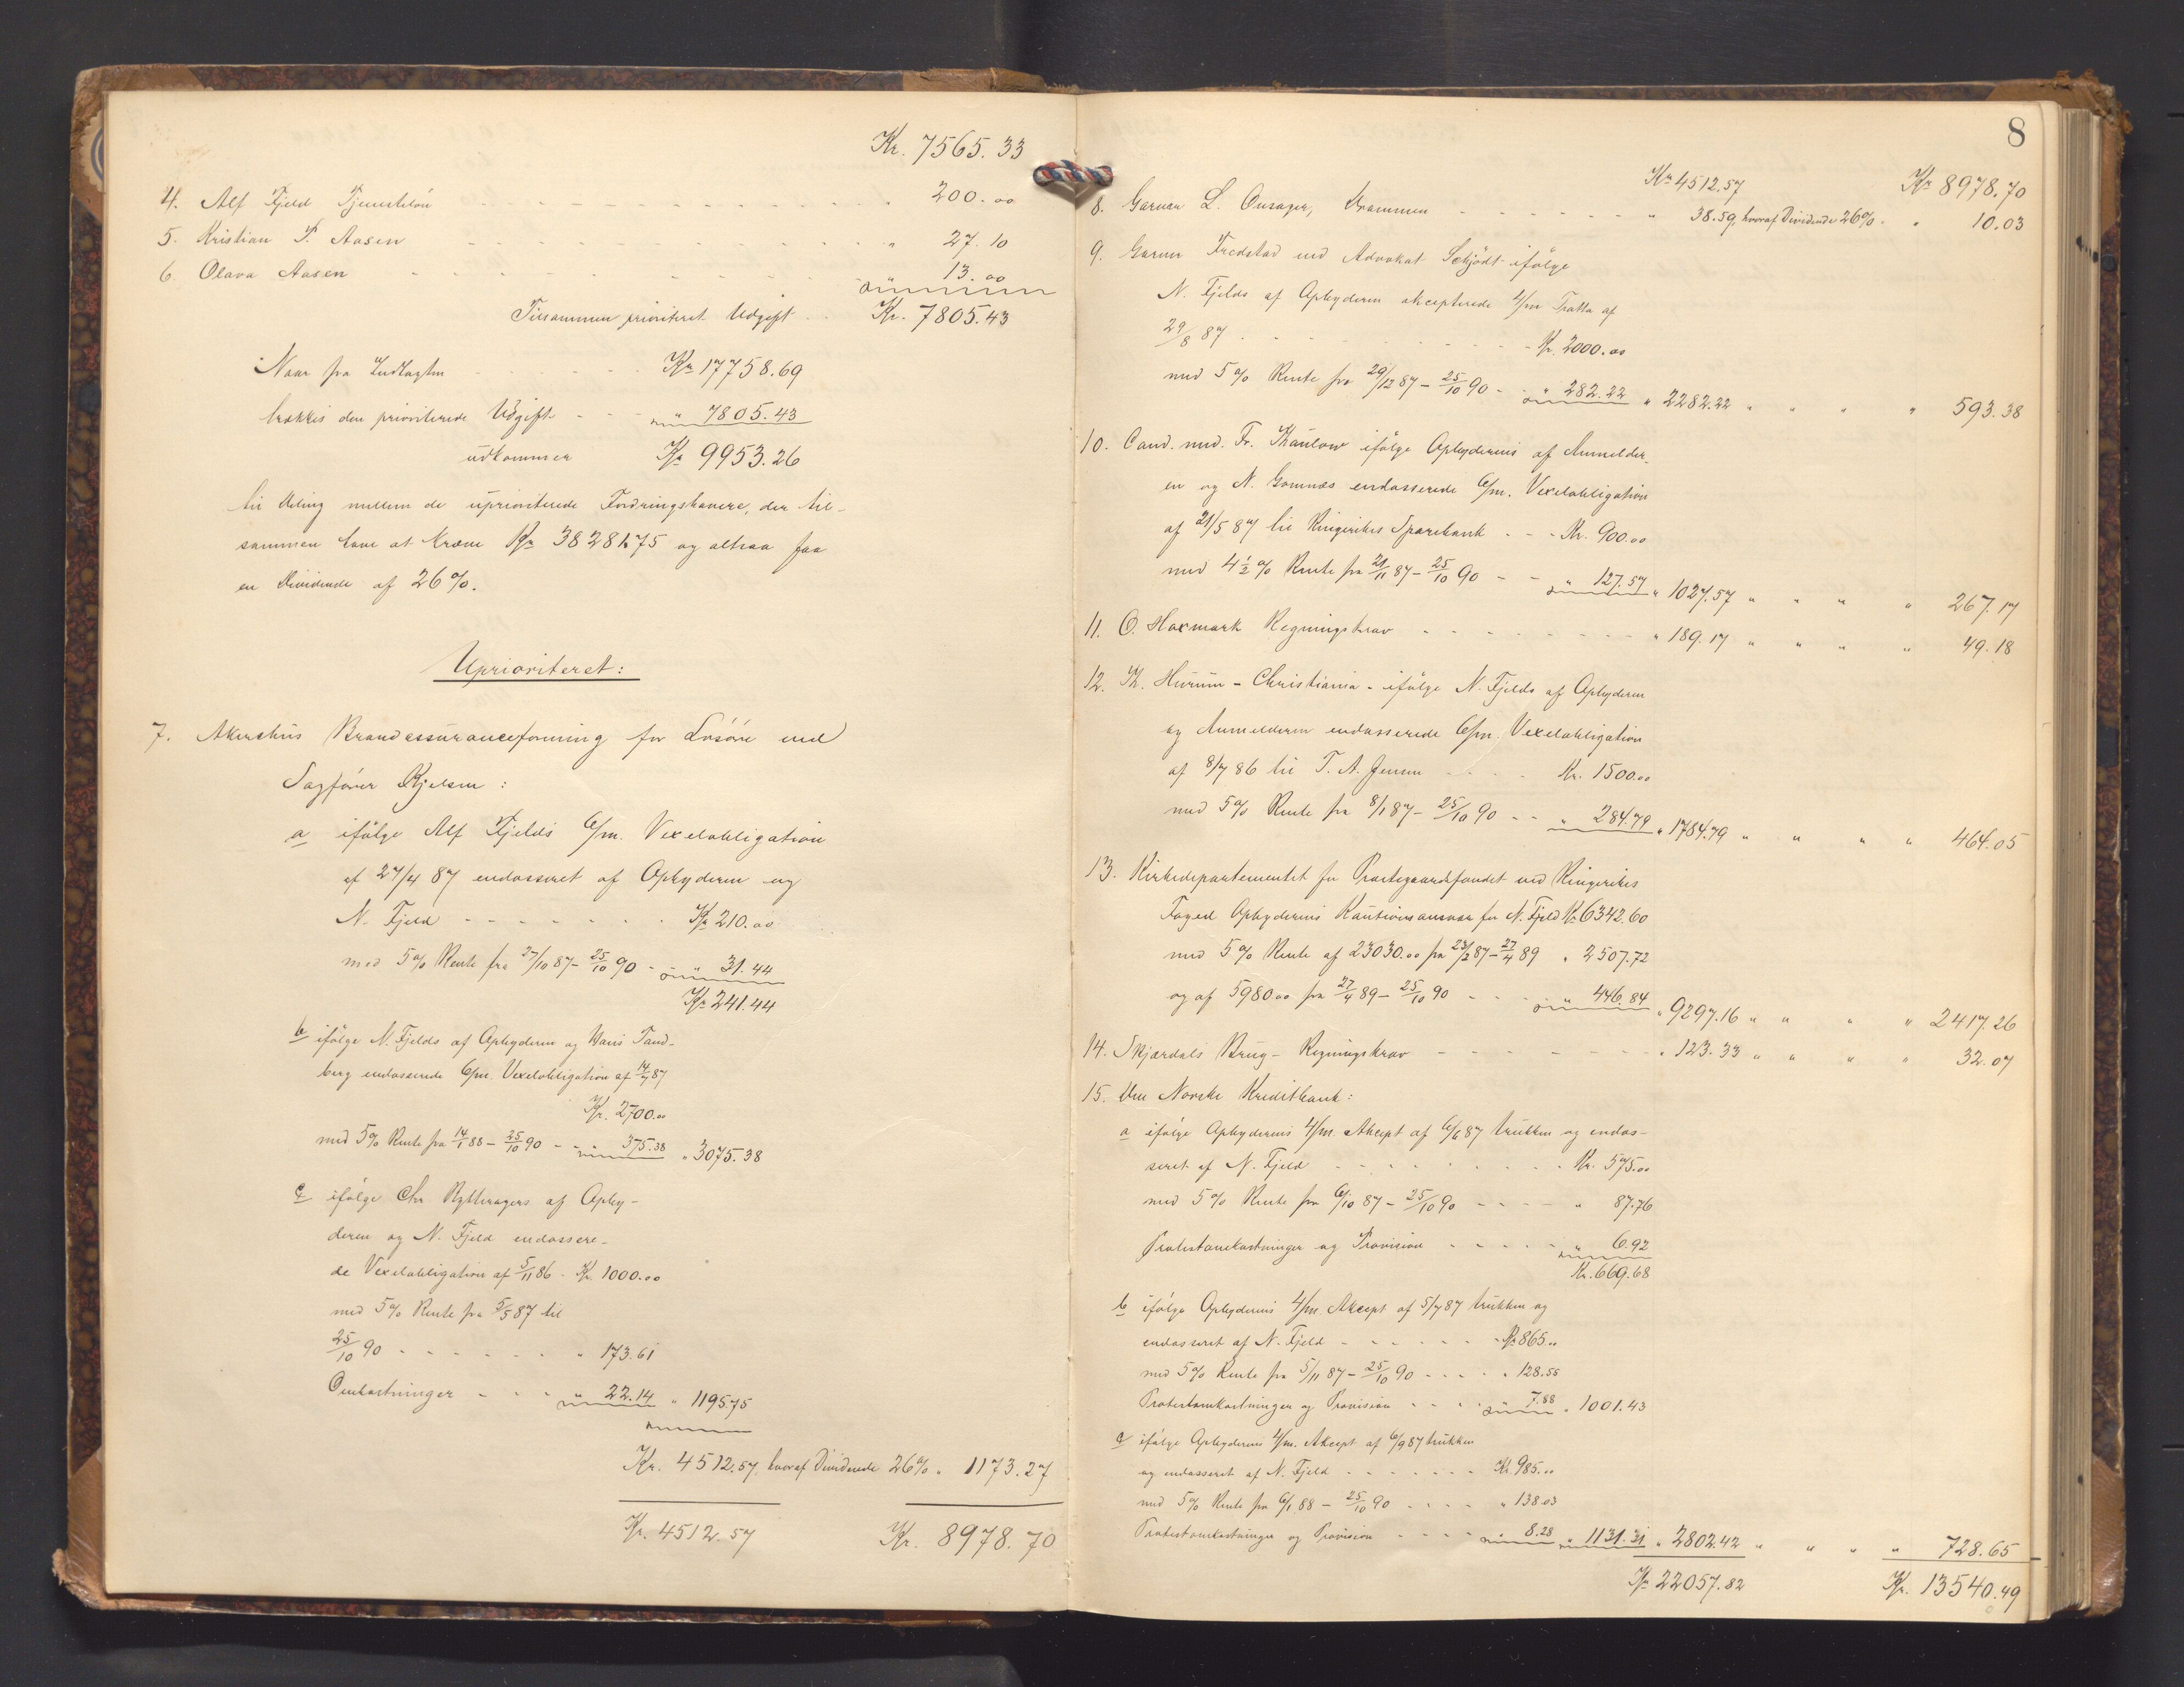 Kr. 7565.33
4. Alf Fjeld Tjenestelön " 200.00
5. Kristian P. Aasen " 27.10
6. Olava Aasen " 13.00
Tilsammen prioriteret Udgift Kr. 7805.43
Naar fra Indtægten Kr 17758.69
trækkes den prioriterede Udgift " 7805.43
udkommer Kr 9953.26
til Deling mellem de uprioriterede Fordringshavere, der til-
sammen have at kræve Kr 38281.75 og altsaa faa
en Dividende af 26%.
Uprioriteret:
7. Akershus Brandassuranceforening for Lösöre ved
Sagförer Kjelsen:
a ifölge Alf Fjelds 6/m. Vexelobligation
af 27/4 87 endosseret af Opbyderen og
N. Fjeld Kr 210.00
med 5% Rente fra 27/10 87 - 25/10 90 " 31.44
Kr 241.44
b ifölge N. Fjelds af Opbyderen og Hans Tand-
berg endosserede 6/m. Vexelobligation af 14/7 87
Kr. 2700.00
med 5% Rente fra 14/1 88 - 25/10 90 " 375.38 " 3075.38
c ifölge Chr. Rytteragers af Opby-
deren og N. Fjeld endossere-
de Vexelobligation af 5/11 86 Kr. 1000.00
med 5% Rente fra 5/5 87 til
25/10 90 " 173.61
Omkostninger " 22.14 " 1195.75
Kr. 4512.57, hvoraf Dividende 26% " 1173.27
Kr. 4512.57 Kr. 8978.70
8
Kr 4512.57 Kr 8978.70
8. Garver L. Onsager, Drammen " 38.59, hvoraf Dividende 26% " 10.03
9. Garver Fredstad ved Advokat Schjödt ifölge
N. Fjelds af Opbyderen akcepterede 4/m Tratta af
29/8 87 Kr. 2000.00
med 5% Rente fra 29/12 87 - 25/10 90 " 282.22 " 2282.22 " " " " 593.38
10. Cand. med. Fr. Thaulow ifölge Opbyderens af Anmelder-
en og N. Gomnæs endosserede 6/m. Vexelobligation
af 21/5 87 til Ringerikes Sparebank Kr. 900.00
med 4½% Rente fra 21/11 87 - 25/10 90 " 127.57 " 1027.57 " " " " 267.17
11. O. Hoxmark Regningskrav " 189.17 " " " " 49.18
12. Th. Hurum - Christiania - ifölge N. Fjelds af Opbyderen
og Anmelderen endosserede 6/m. Vexelobligation
af 8/7 86 til T. A. Jensen Kr. 1500.00
med 5% Rente fra 8/1 87 - 25/10 90 " 284.79 " 1784.79 " " " " 464.05
13. Kirkedepartementet for Præstegaardsfondet ved Ringerikes
Foged Opbyderens Kautionsansvar for N. Fjeld Kr 6342.60
med 5% Rente af 23030.00 fra 23/2 87 - 27/4 89 " 2507.72
og af 5980.00 fra 27/4 89 - 25/10 90 " 446.84 " 9297.16 " " " " 2417.26
14. Skjærdals Brug - Regningskrav " 123.33 " " " " 32.07
15. Den Norske Kreditbank:
a ifölge Opbyderens 4/m. Akcept af 6/6 87 trukken og endos-
seret af N. Fjeld Kr. 575.00
med 5% Rente fra 6/10 87 - 25/10 90 " 87.76
Protestomkostninger og Provision " 6.92
Kr. 669.68
b ifölge Opbyderens 4/m. Akcept af 5/7 87 trukken og
endosseret af N. Fjeld Kr 865.00
med 5% Rente fra 5/11 87 - 25/10 90 " 128.55
Protestomkostninger og Provision " 7.88 " 1001.43
c ifölge Opbyderens 4/m. Akcept af 6/9 87 trukken
og endosseret af N. Fjeld Kr. 985.00
med 5% Rente fra 6/1 88 - 25/10 90 " 138.03
Protestomkostninger og Provision " 8.28 " 1131.31 " 2802.42 " " " " 728.65
Kr 22057.82 Kr. 13540.49